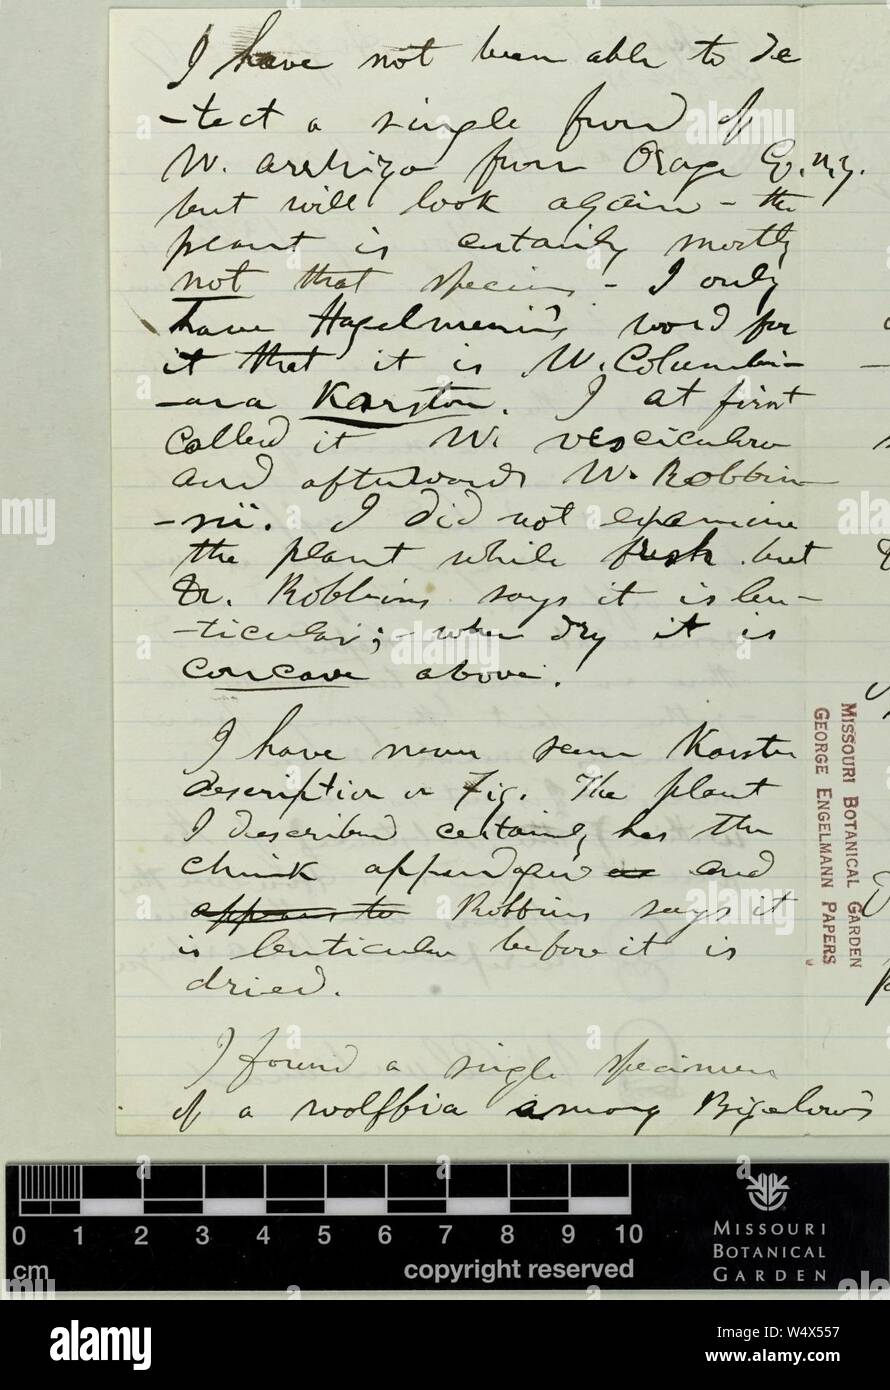 I have not been able to de
-tect a single frond of
W. arrhiza from Orage Co. N.Y.
but will look again - the
plant is certainly mostly
not that species - I only
have Hegelmeier's word for
it that it is W. Columbi-
-ana Karsten. I at first
called it W. vesciculara
and afterwards W. Robbin-
-sii. I did not examine
the plant while fresh but
Dr. Robbins says it is len-
-ticular; - when dry it is
concave above.
I have never seen Karsten
description or Fig. The plant
I described certainly has the
chink appendages and
appears to Robbins says it
is lenticular before it is
dried.
I found a single specimen
of a wolffia among Bigelow's
MISSOURI BOTANICAL GARDEN
GEORGE ENGELMANN PAPERS
0 1 2 3 4 5 6 7 8 9 10
cm
copyright reserved
MISSOURI
BOTANICAL
GARDEN
alamy
Image ID: W4X557
www.alamy.com